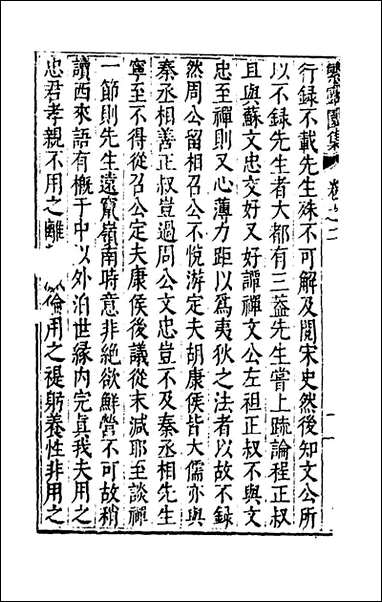 園集 卷之二
行錄不載先生殊不可解及閱宋史然後知文公所
以不錄先生者大都有三葢先生嘗上疏論程正叔
且與蘇文忠交好又好譚禪文公左袒正叔不與文
忠至禪則又心薄力距以爲夷狄之法者以故不錄
然周公留相召公不悅游定夫胡康侯皆大儒亦與
秦丞相善正叔豈過周公文忠豈不及秦丞相先生
寧至不得從召公定夫康侯後議從末減耶至談禪
一節則先生遠竄嶺南時意非絕欲鮮營不可故稍
讀西來語有概于中以外泊世緣內完真我夫用之
忠君孝親不用之離倫用之禔躬養性非用之